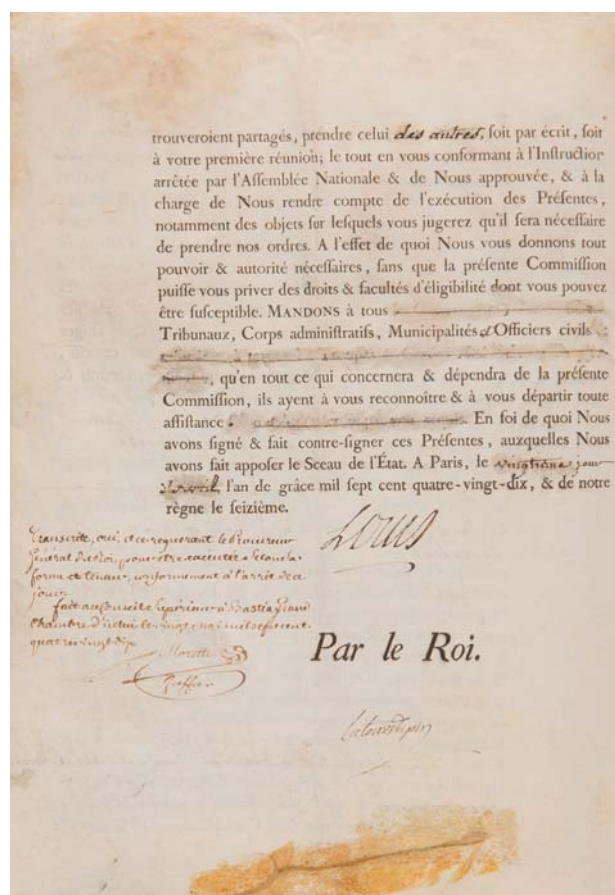 trouveroient partagés, prendre celui des autres, ſoit par écrit, ſoit
à votre première réunion; le tout en vous conformant à l'Inſtruction
arrêtée par l'Aſſemblée Nationale & de Nous approuvée, & à la
charge de Nous rendre compte de l'exécution des Préſentes,
notamment des objets ſur leſquels vous jugerez qu'il ſera néceſſaire
de prendre nos ordres. A l'effet de quoi Nous vous donnons tout
pouvoir & autorité néceſſaires, ſans que la préſente Commiſſion
puiſſe vous priver des droits & facultés d'éligibilité dont vous pouvez
être ſuſceptible. MANDONS à tous
Tribunaux, Corps adminiſtratifs, Municipalités et Officiers civils
, qu'en tout ce qui concernera & dépendra de la préſente
Commiſſion, ils ayent à vous reconnoître & à vous départir toute
aſſiſtance. En foi de quoi Nous
avons ſigné & fait contre-ſigner ces Préſentes, auxquelles Nous
avons fait appoſer le Sceau de l'État. A Paris, le vingtième jour
d'avril, l'an de grâce mil ſept cent quatre-vingt-dix, & de notre
règne le ſeizième.
Louis
Transcrite, oui, et ce requerant le Procureur
Général du Roi, pour être executée selon sa
forme et teneur, conformement à l'arrêt de ce
jour.
fait au Conseil Supérieur à Bastia Grand
Chambre d'icelui le vingt mai mil sept cent
quatre vingt dix
Morette
Greffier
Par le Roi.
Latourdupin